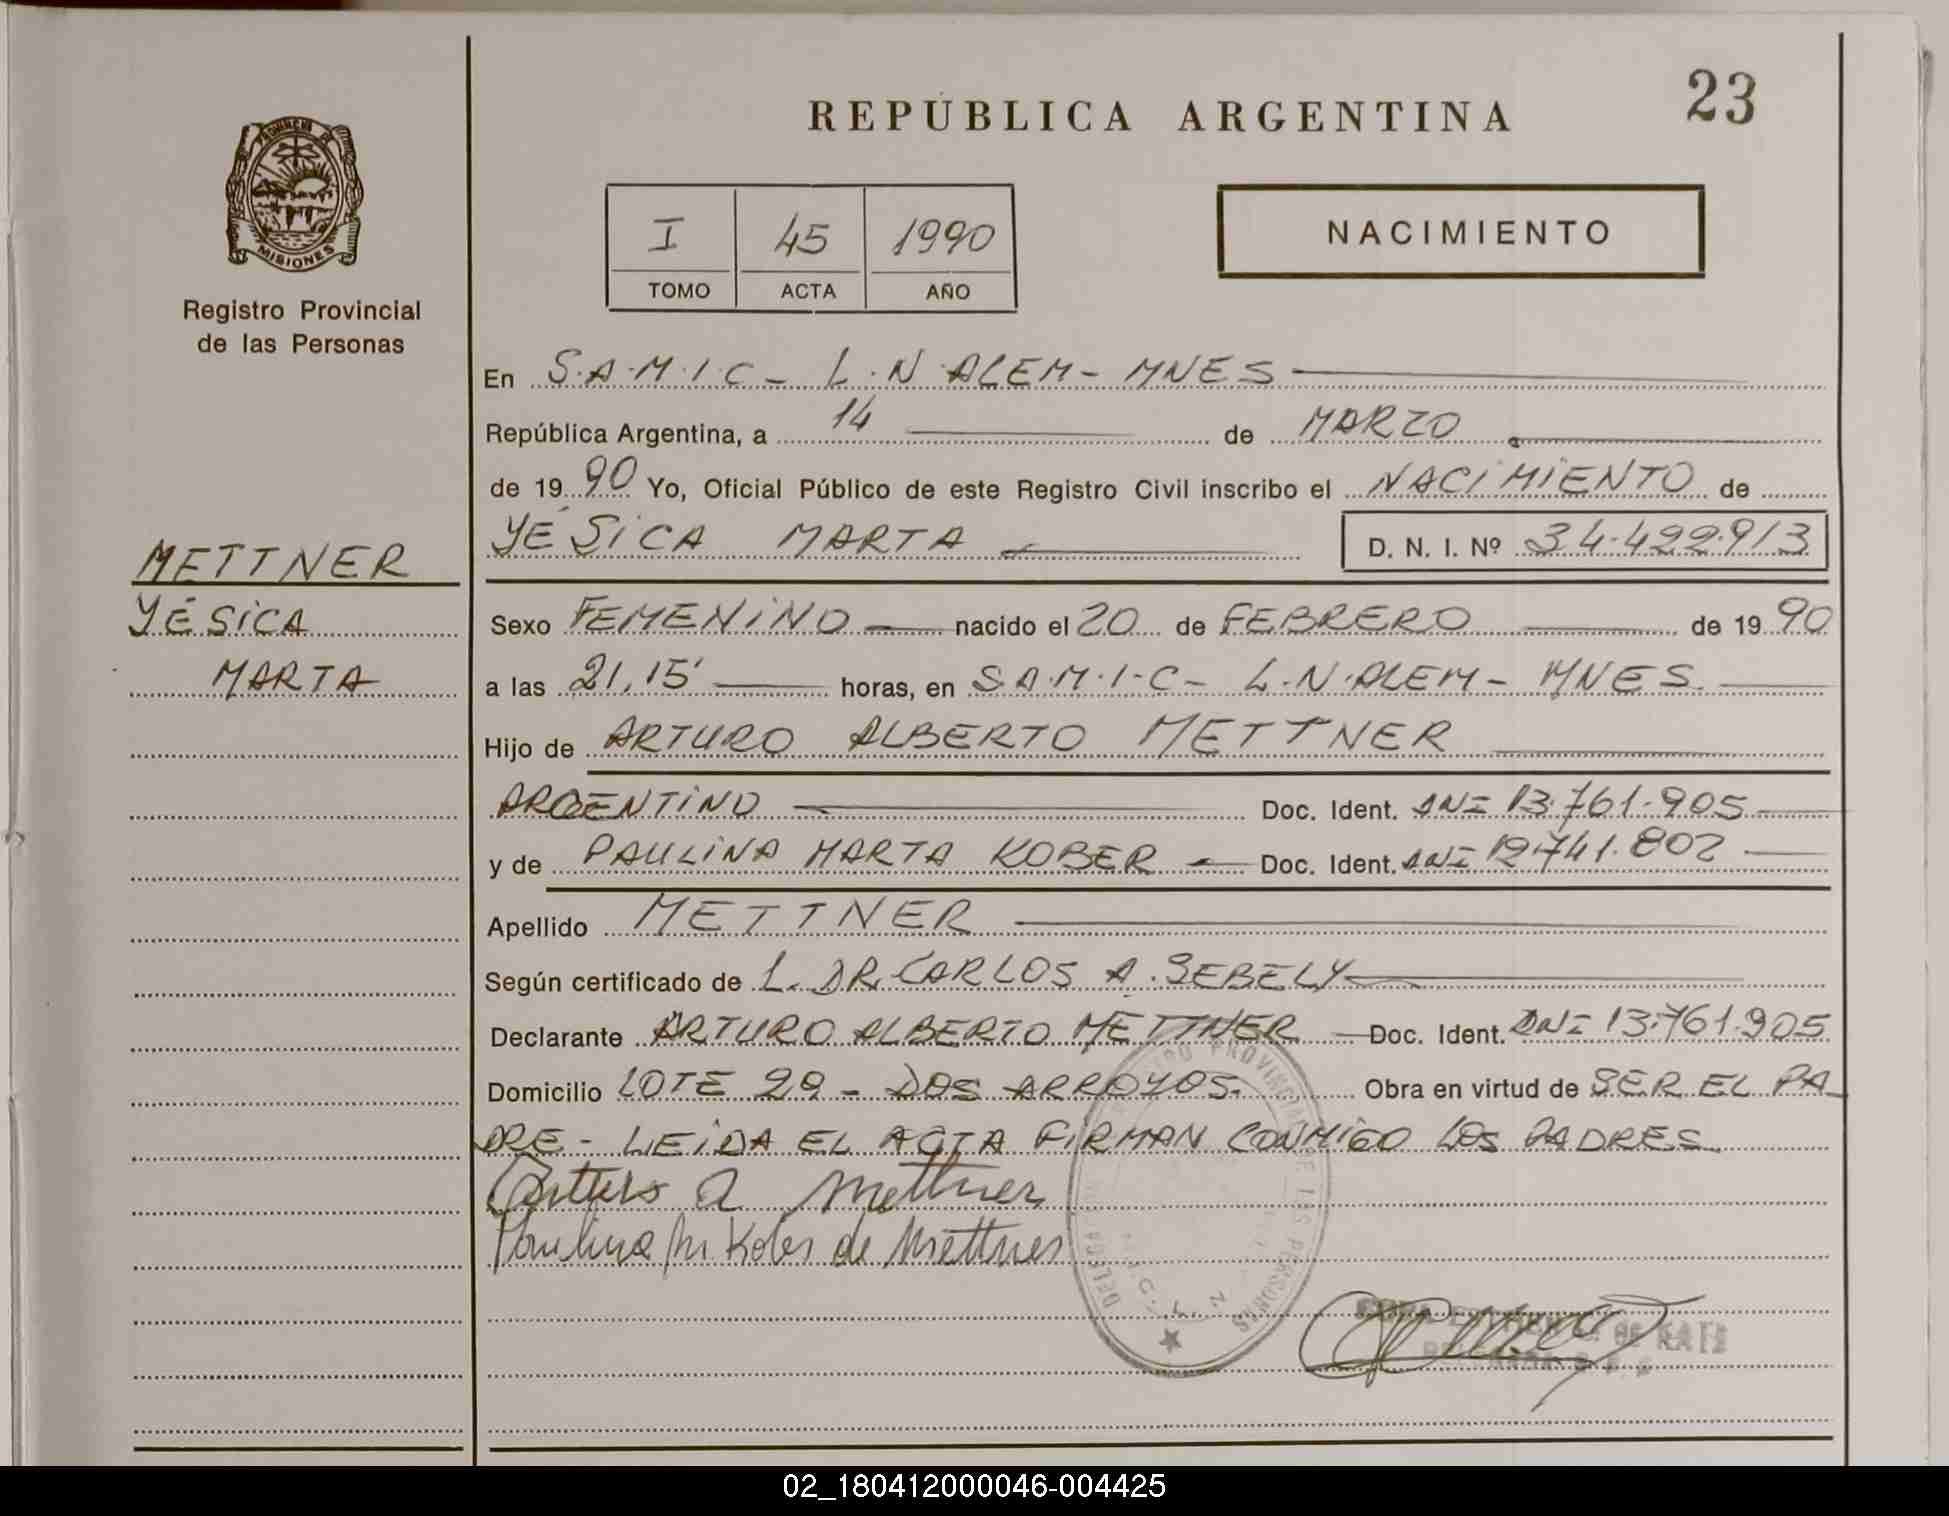 REPÚBLICA ARGENTINA
23
PROVINCIA DE
MISIONES
Registro Provincial
de las Personas
I 45 1990
TOMO ACTA AÑO
NACIMIENTO
En S.A.M.I.C - L.N. ALEM - MNES
República Argentina, a 14 de MARZO
de 19 90 Yo, Oficial Público de este Registro Civil inscribo el NACIMIENTO de
YÉSICA MARTA D. N. I. Nº 34.422.913
METTNER
YÉSICA
MARTA
Sexo FEMENINO nacido el 20 de FEBRERO de 19 90
a las 21,15' horas, en S.A.M.I.C - L.N. ALEM - MNES.
Hijo de ARTURO ALBERTO METTNER
ARGENTINO Doc. Ident. DNI 13.761.905
y de PAULINA MARTA KOBER Doc. Ident. DNI 12.741.802
Apellido METTNER
Según certificado de L. DR. CARLOS A. SEBELY
Declarante ARTURO ALBERTO METTNER Doc. Ident. DNI 13.761.905
Domicilio LOTE 29 - DOS ARROYOS. Obra en virtud de SER EL PA-
DRE - LEIDA EL ACTA FIRMAN CONMIGO LOS PADRES
Arturo A Mettner
Paulina M. Kober de Mettner
PROVINCIAL DE LAS PERSONAS
DE KATZ
02_180412000046-004425